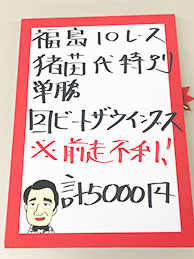 福島10レース
猪苗代特別
単勝
②ビートザウイングス
※前走不利!
計5000円